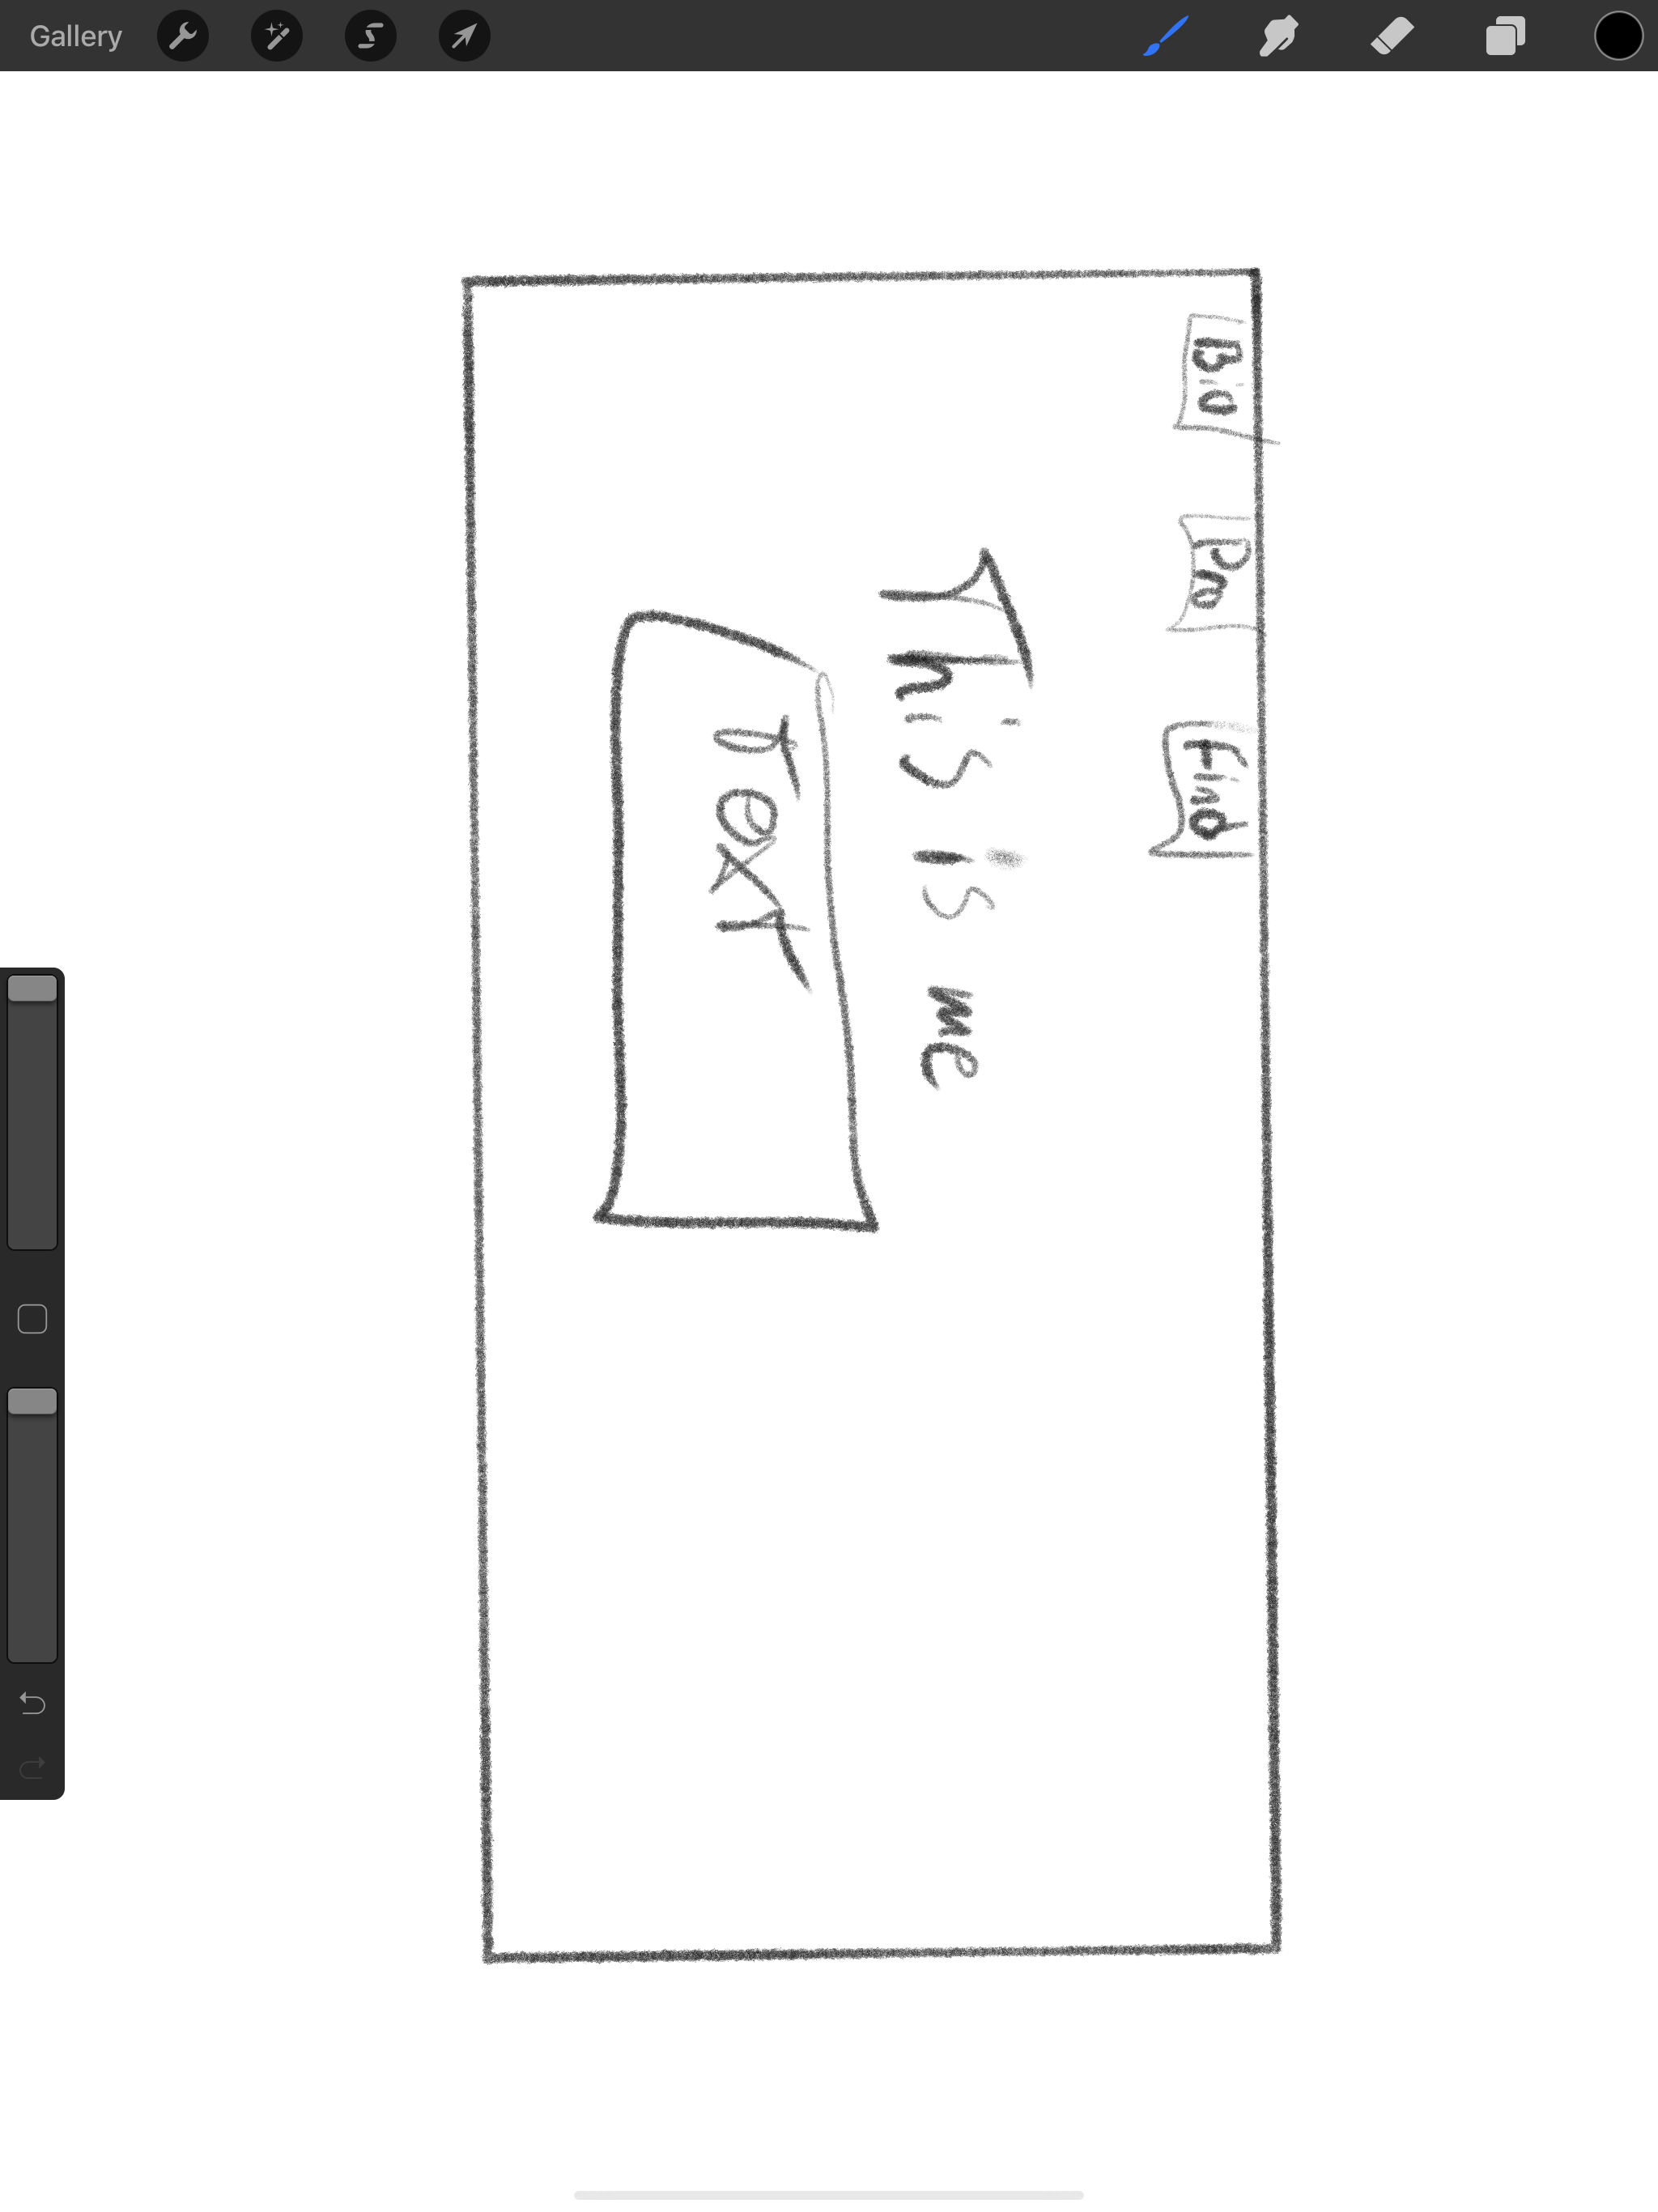 Gallery
Bio Pro Find
This is me
Text